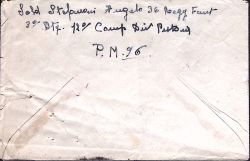 Sold Stefanoni Angelo 36 Regg Fant
3° Btg. 12° Comp Div Pistoia
P.M. 96.